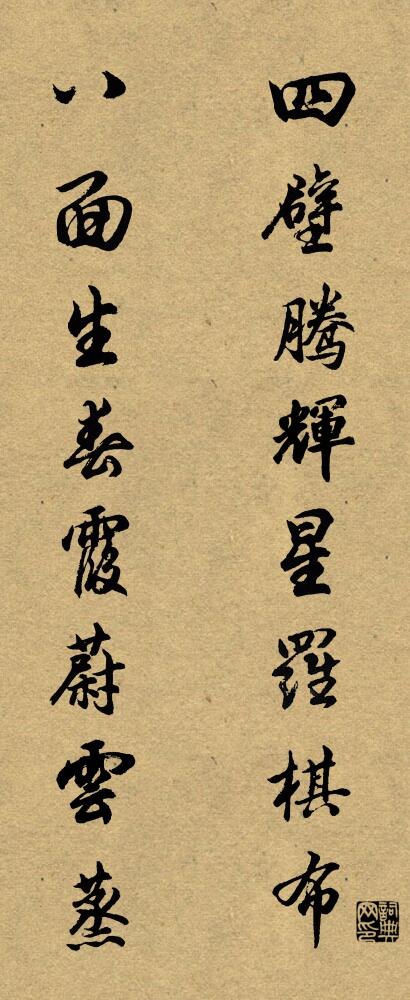 四壁騰輝星羅棋布
八面生春霞蔚雲蒸
詞典网印